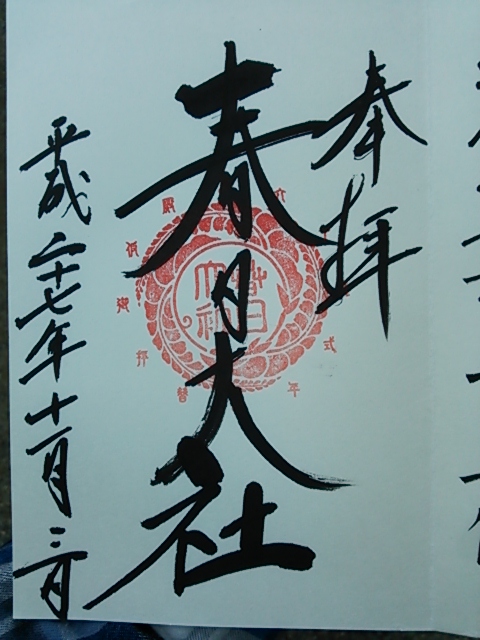 奉拝
春日大社
平成二十七年十一月三日